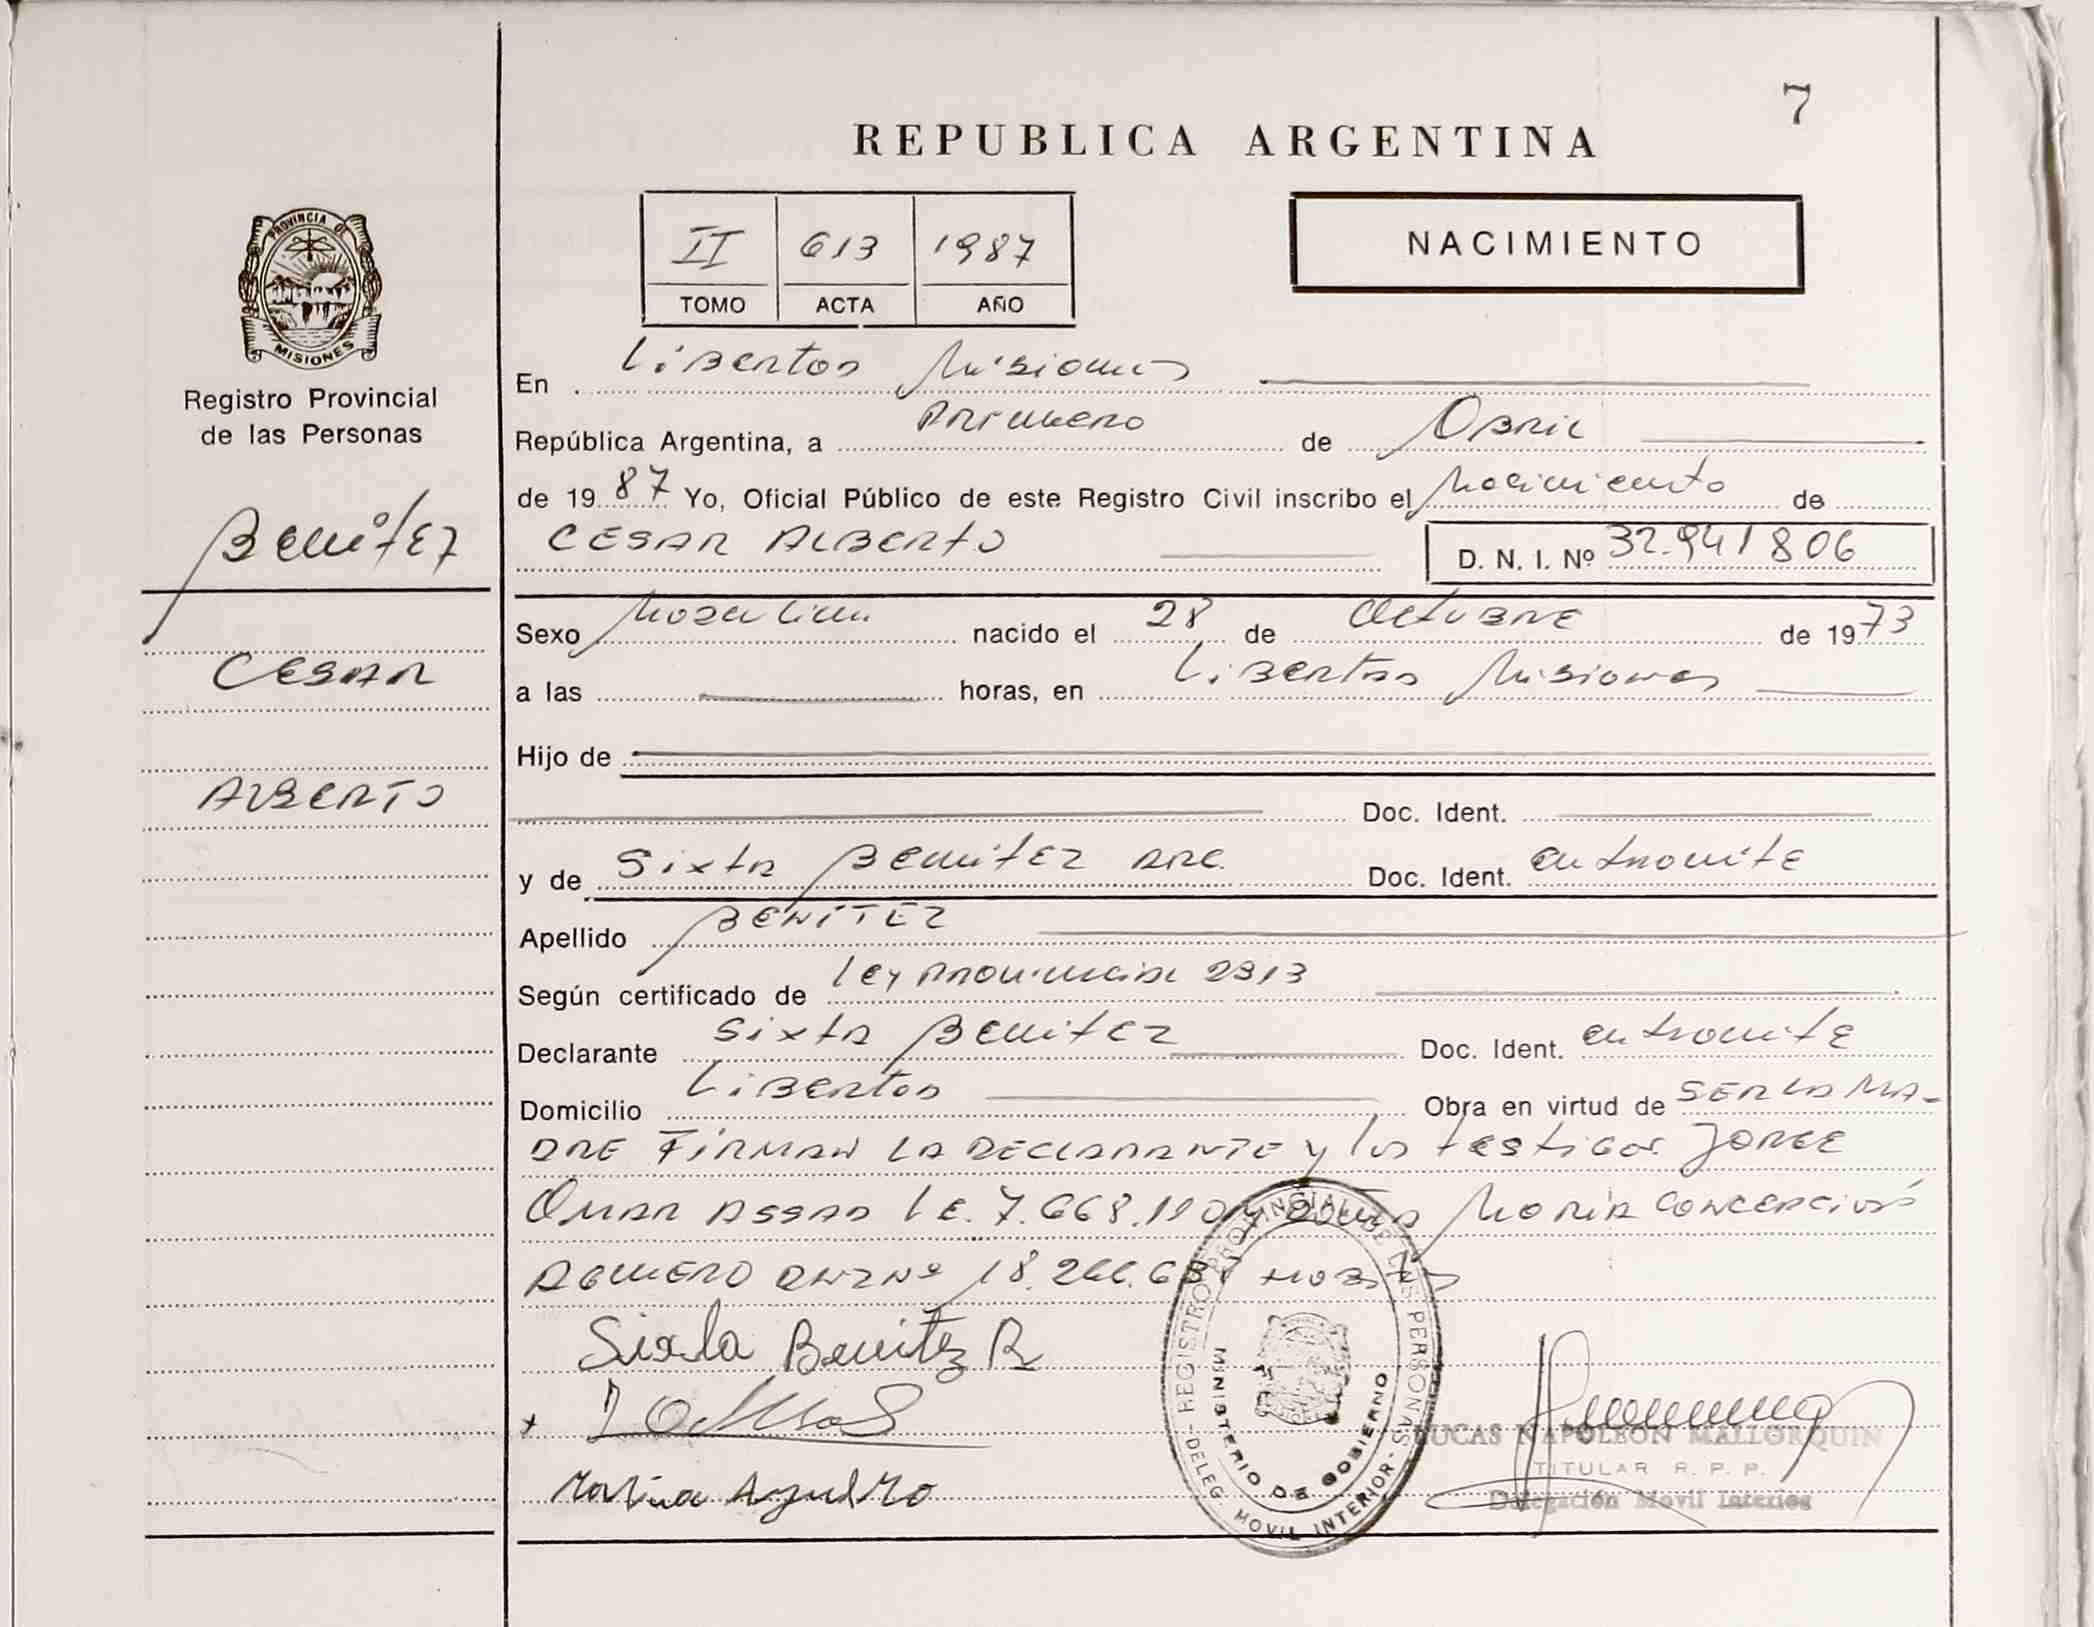 7
REPUBLICA ARGENTINA
II 613 1987
TOMO ACTA AÑO
NACIMIENTO
PROVINCIA DE
MISIONES
Registro Provincial
de las Personas
Benítez
CESAR
ALBERTO
En Libertad Misiones
República Argentina, a Primero de Abril
de 1987 Yo, Oficial Público de este Registro Civil inscribo el Nacimiento de
CESAR ALBERTO D. N. I. Nº 32.941806
Sexo Masculino nacido el 28 de Octubre de 1973
a las horas, en Libertad Misiones
Hijo de
Doc. Ident.
y de Sixta Benitez Doc. Ident. en tramite
Apellido BENÍTEZ
Según certificado de Ley Provincial 2313
Declarante Sixta Benitez Doc. Ident. en tramite
Domicilio Libertad Obra en virtud de SER LA MA-
DRE FIRMAN LA DECLARANTE y los testigos JORGE
OMAR ASSAD LE. 7.668.190 y María CONCEPCIÓN
AGUERO DNI Nº
Sixta Benitez R
REGISTRO PROVINCIAL DE LAS PERSONAS
MINISTERIO DE GOBIERNO
DELEG. MOVIL INTERIOR
LUCAS NAPOLEON MALLORQUIN
TITULAR R. P. P.
Delegación Movil Interior